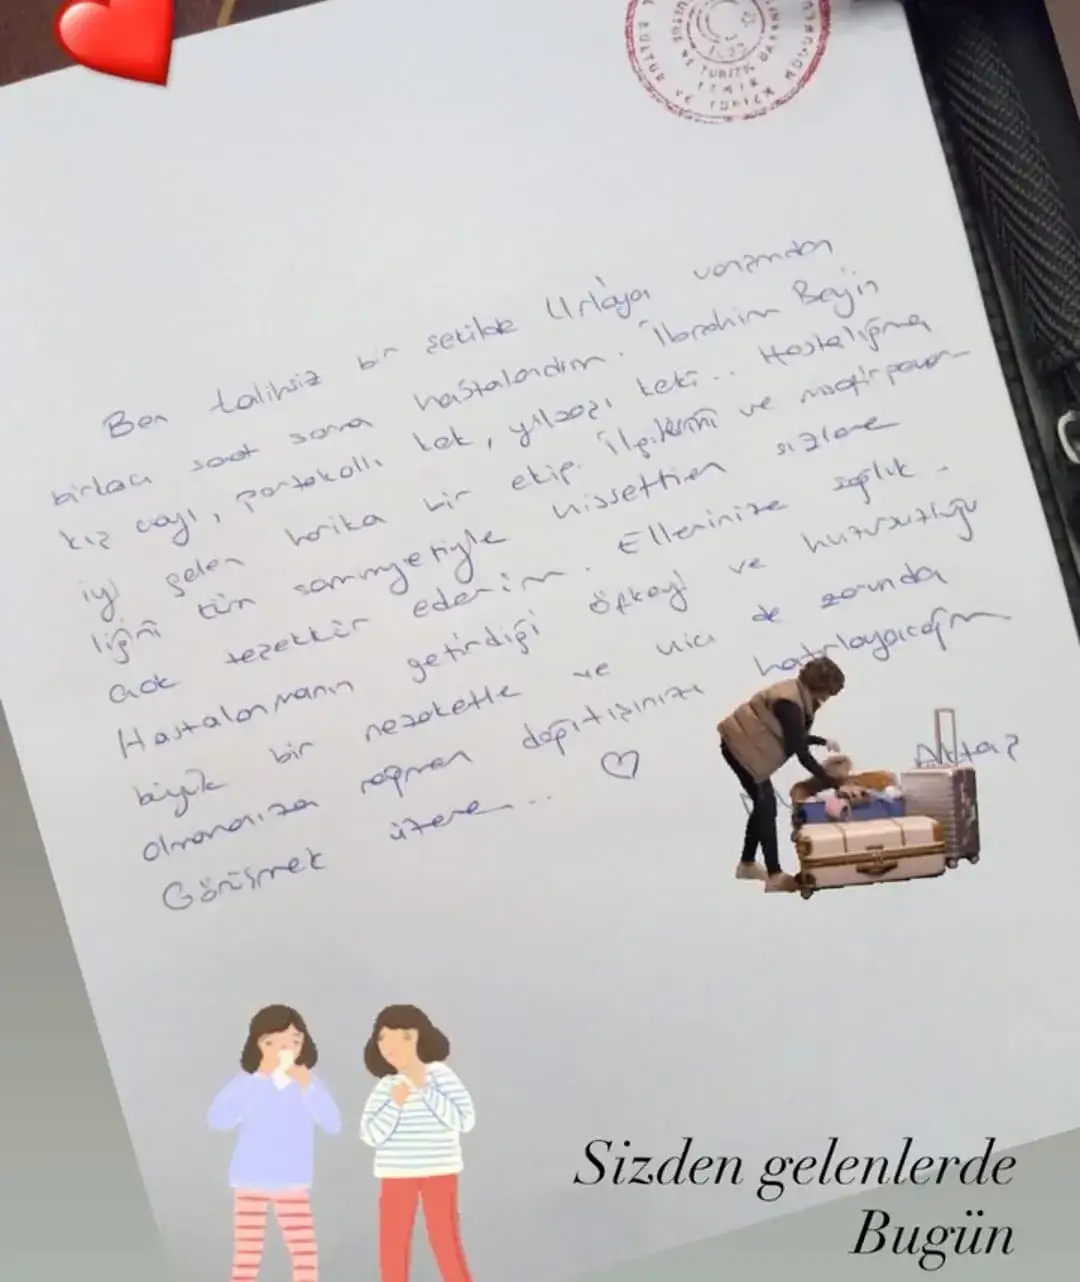 KÜLTÜR VE TURİZM
İZMİR
Ben talihsiz bir şekilde Urla'ya varımdan
birkaç saat sonra hastalandım. İbrahim Bey'in
kış çayı, portakallı kek, yılbaşı keki... Hastalığıma
iyi gelen harika bir ekip. İlgilerini ve misafirperver-
liğini tüm samimiyetiyle hissettiren sizlere
çok teşekkür ederim. Ellerinize sağlık.
Hastalanmanın getirdiği öfkeyi ve huzursuzluğu
büyük bir nezaketle ve hiç de zorunda
olmamanıza rağmen dağıtışınızı hatırlayacağım
Görüşmek üzere... ♡
Aktaş
Sizden gelenlerde
Bugün